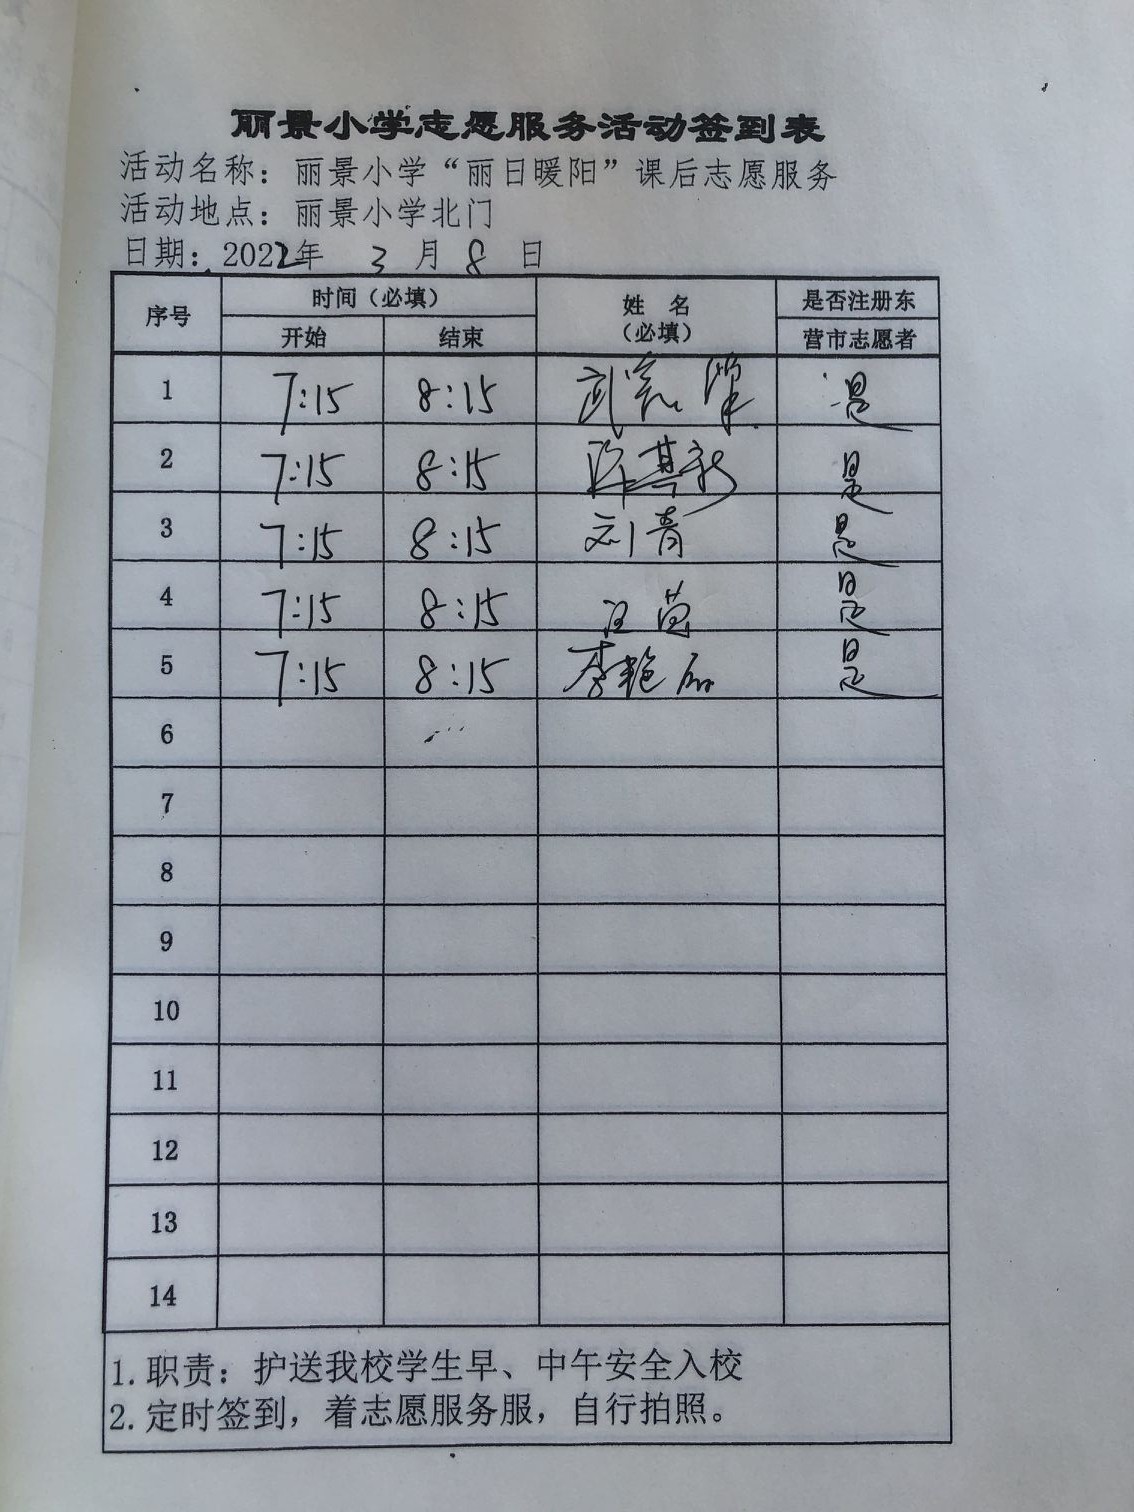 丽景小学志愿服务活动签到表
活动名称：丽景小学“丽日暖阳”课后志愿服务
活动地点：丽景小学北门
日期：2022年 3 月 8 日
序号 时间（必填） 姓 名 是否注册东
开始 结束 （必填） 营市志愿者
1 7:15 8:15 武 是
2 7:15 8:15 陈其新 是
3 7:15 8:15 刘青 是
4 7:15 8:15 是
5 7:15 8:15 李艳丽 是
6
7
8
9
10
11
12
13
14
1.职责：护送我校学生早、中午安全入校
2.定时签到，着志愿服务服，自行拍照。